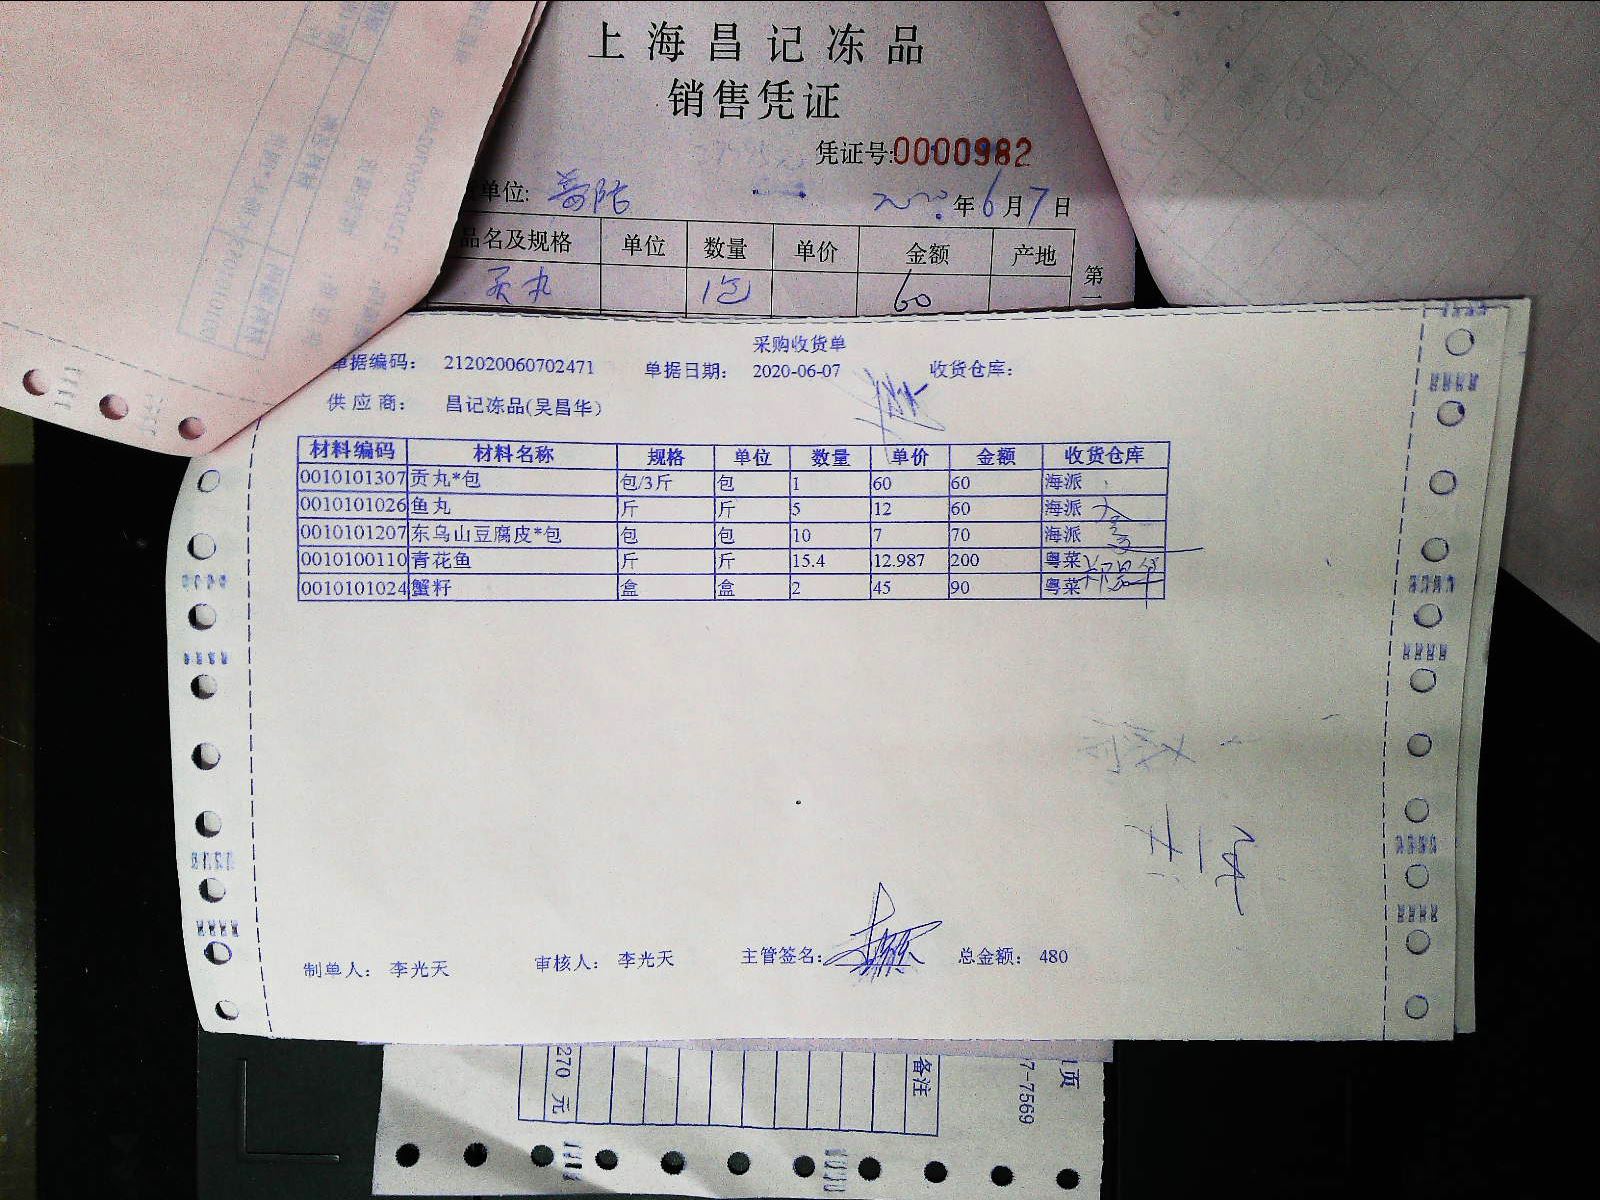 上海昌记冻品
销售凭证
凭证号:0000982
单位:
年6月7日
品名及规格 单位 数量 单价 金额 产地
贡丸 1包 60
第一
采购收货单
单据编码: 212020060702471 单据日期: 2020-06-07 收货仓库:
供应商: 昌记冻品(吴昌华)
材料编码 材料名称 规格 单位 数量 单价 金额 收货仓库
0010101307 贡丸*包 包/3斤 包 1 60 60 海派
0010101026 鱼丸 斤 斤 5 12 60 海派
0010101207 东乌山豆腐皮*包 包 包 10 7 70 海派
0010100110 青花鱼 斤 斤 15.4 12.987 200 粤菜
0010101024 蟹籽 盒 盒 2 45 90 粤菜
制单人: 李光天 审核人: 李光天 主管签名: 总金额: 480
270 元
备注
7-7569
页